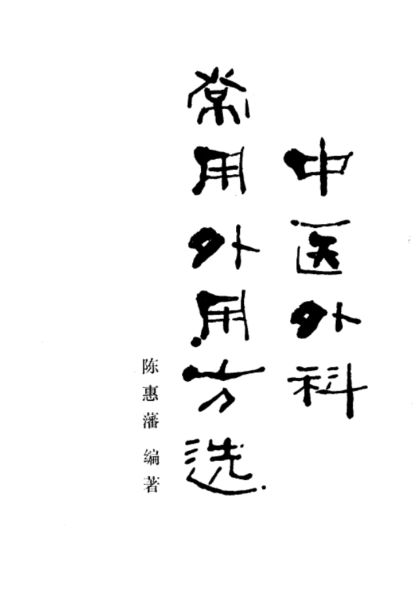 中医外科
常用外用方选
陈惠藩 编著